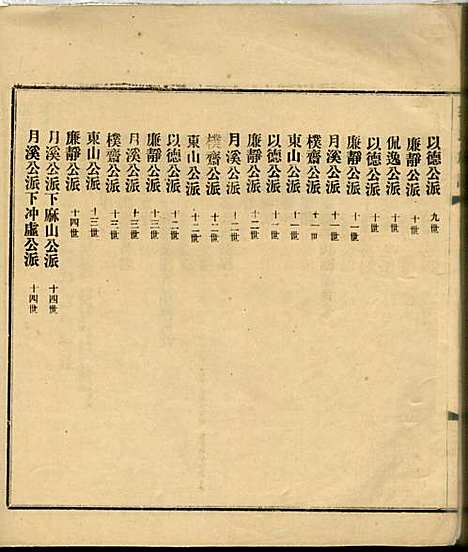 以德公派 九世
廉靜公派 十世
侃逸公派 十世
以德公派 十世
廉靜公派 十一世
月溪公派 十一世
樸齋公派 十一世
東山公派 十一世
以德公派 十一世
廉靜公派 十二世
月溪公派 十二世
樸齋公派 十二世
東山公派 十二世
以德公派 十二世
廉靜公派 十三世
月溪公派 十三世
樸齋公派 十三世
東山公派 十三世
廉靜公派 十四世
月溪公派下麻山公派 十四世
月溪公派下冲虛公派 十四世